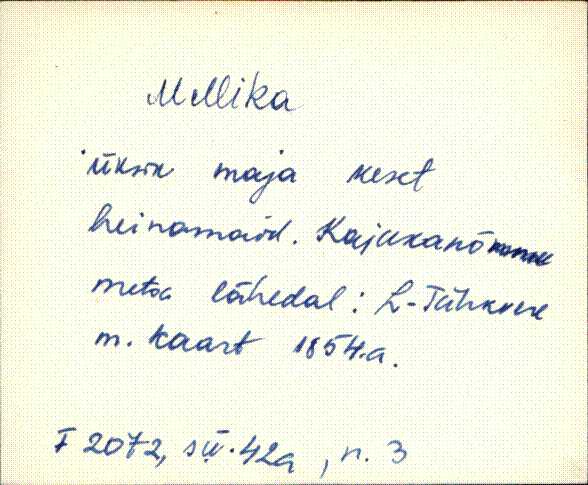 Mellika
üksik maja keset
heinamaid. Kajukanõmme
metsa lähedal: L-Tähkvere
m. kaart 1854.a.
F 2072, sü. 42a, n. 3